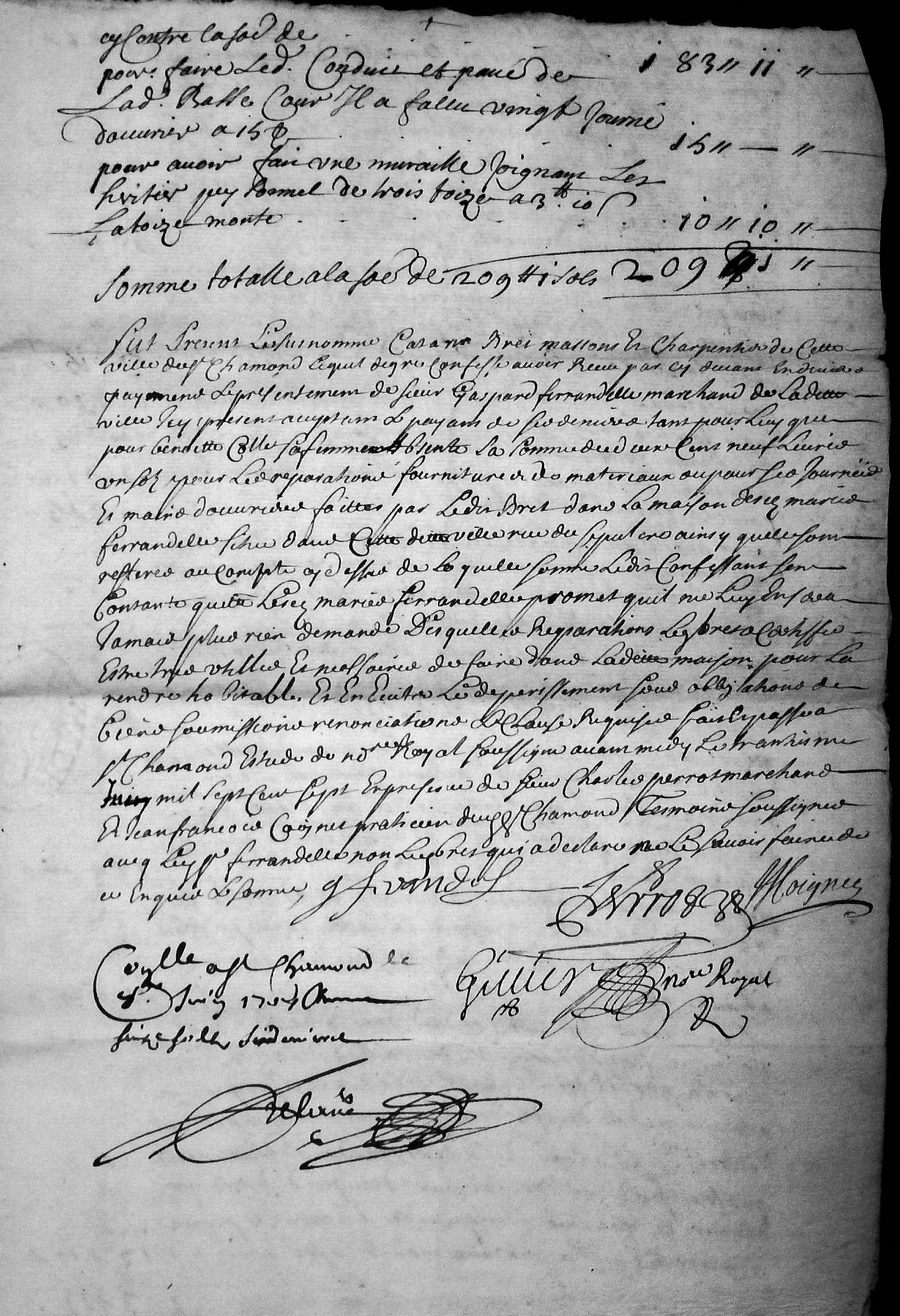 cy Contre la so.e de 183 " 11 "
pour faire Led. Conduit et pavé de
Lad. Basse Cour Il a fallu vingt Journé
douvrier a 15 s 15 " — "
pour avoir fait vne muraille Joignant Les
heritier de trois toize a 3 tt 10 s
La toize monte 10 " 10 "
Somme totalle a la so.e de 209 tt 1 sols 209 1 "
Fut Present Le susnommé Bret masson Et Charpentier de Cette
ville de St Chamond Lequel de gre Confesse avoir Receu par cy devant En deniers
payement Le present ement de sieur Gaspard ferrandelle marchand de Ladite
ville Icy present acceptant Le payant de ses deniers tant pour Luy que
pour benoitte Colle sa femme Absente La somme de deux Cent neuf Livres
vn sol pour Les reparations fournitures de materiaux ou pour ses Journées
Et mains douvriers faittes par Ledit Bret dans La maison desd. mariés
ferrandelle sise dans Cette ditte ville rue du sepulcre ainsy quelle sont
refferés au Compte cy dessus de Laquelle somme Ledit Confessant sen
Contante quitte Lesd. mariés ferrandelle promet quil ne Luy En sera
Jamais plus rien demandé Desquelles Reparations Led. bret a
Estre tres vtilles Et nessaires de faire dans Laditte maison pour La
rendre habitable Et En Eviter Le deperissement sous obligations de
biens soumissions renonciations & Clauses Requises fait Et passé a
St Chamond Estude du no.re Royal soussigné avant midy Le trantiesme
Juin mil sept Cent sept En presence de sieur Charles perrot marchand
Et Jean francois Coignet praticien dud. St Chamond Temoins soussignés
avec Led. sr ferrandelle non Led. bret qui a declaré ne Le savoir faire de
ce Enquis Et sommé g f
perrot Coignet
Conlle a St Chamond le
Juin 1707
seize sols six deniers
no.re Royal